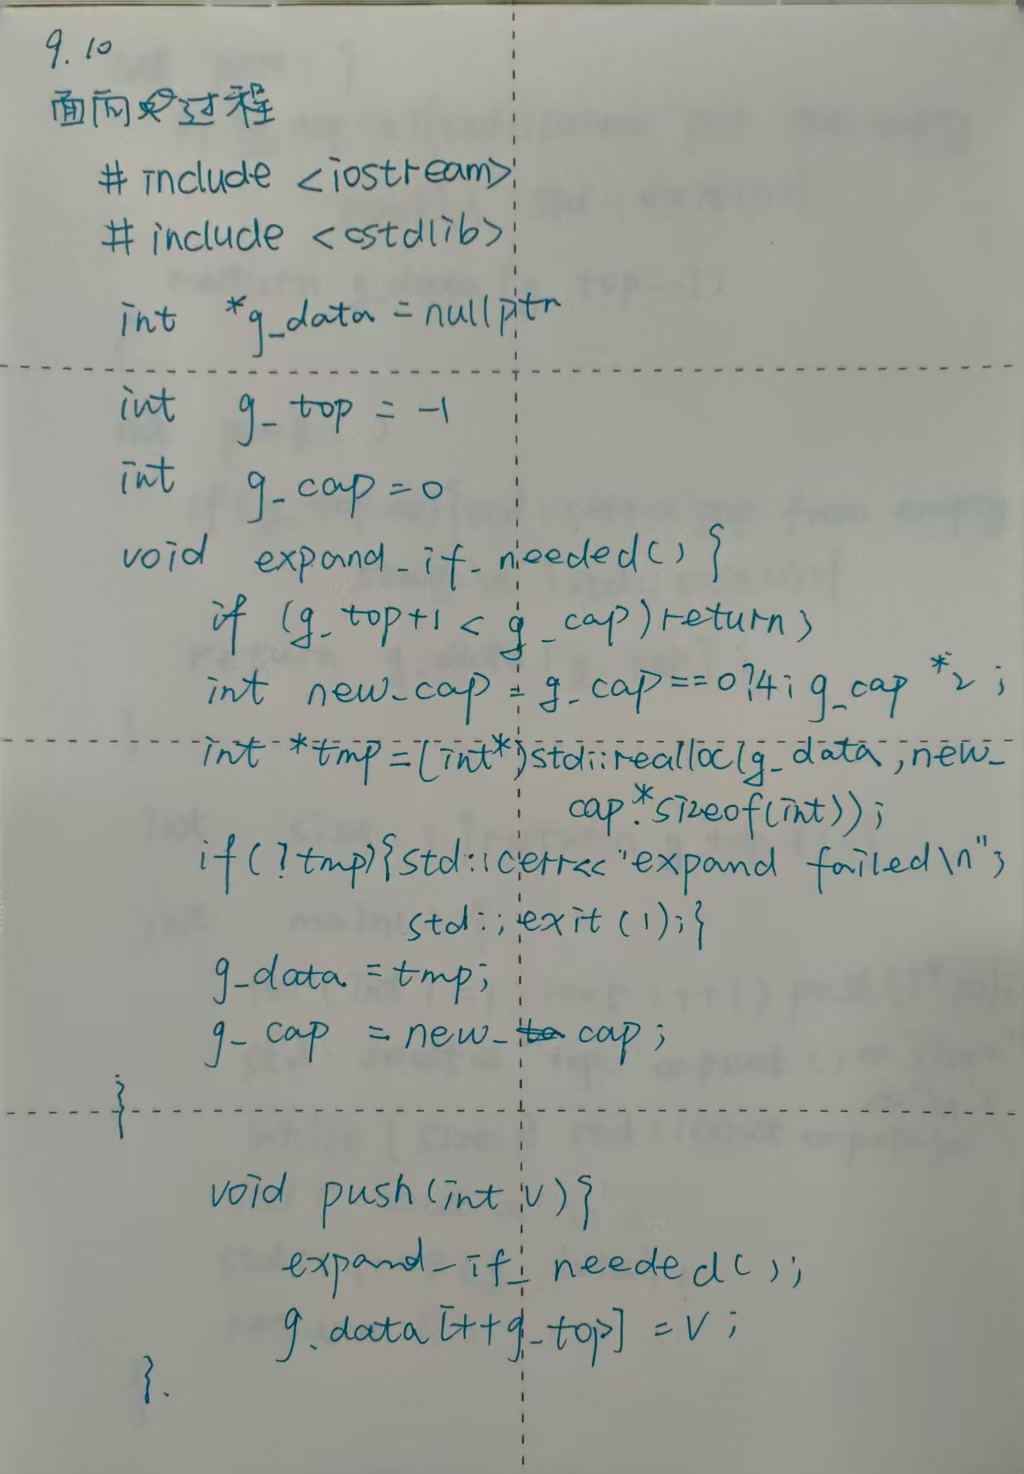 9.10
面向过程
# include <iostream>
# include <cstdlib>
int *g_data = nullptr
int g_top = -1
int g_cap = 0
void expand_if_needed() {
if (g_top+1 < g_cap) return;
int new_cap = g_cap == 0?4; g_cap *2 ;
int *tmp = (int*)std::realloc(g_data, new_
cap.*sizeof(int));
if(?tmp){std::cerr<<"expand failed\n";
std::exit(1);}
g_data = tmp;
g_cap = new_cap;
}
void push(int v){
expand_if_needed();
g.data[++g_top] = v ;
}.